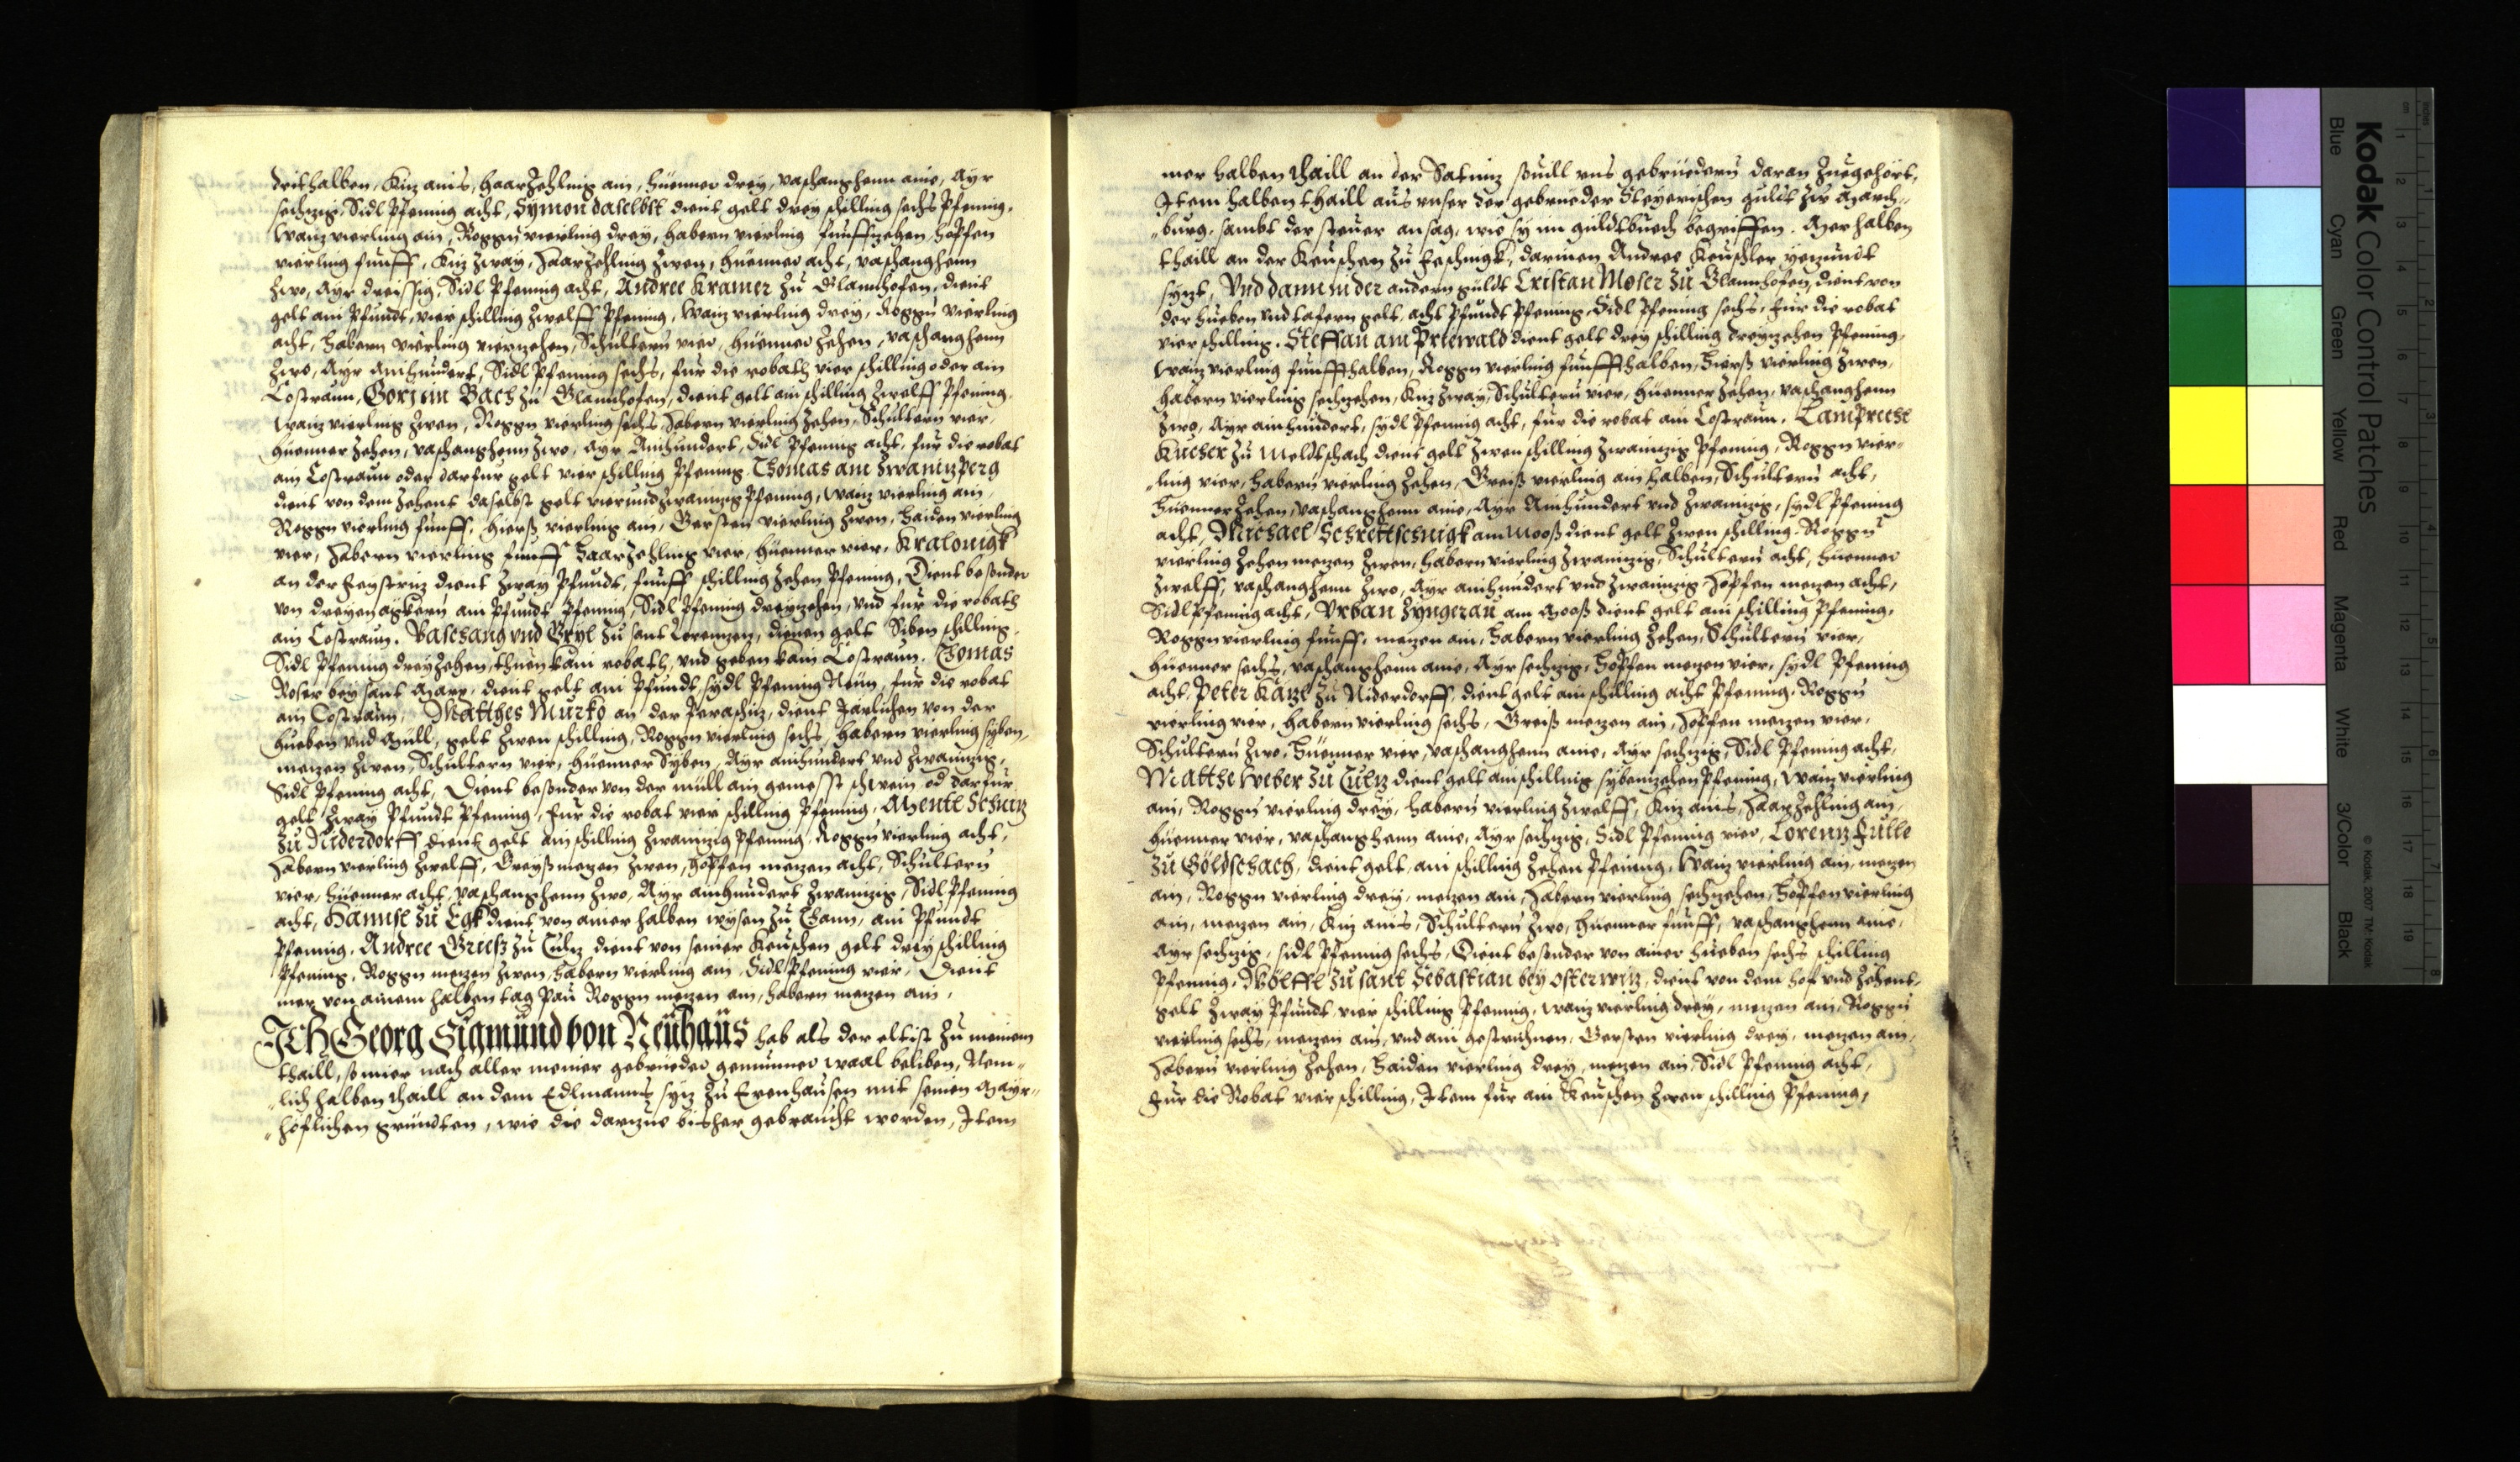 drithalben, Kiz ains, Haarzehling ain, Hüenner drey, vaschanghenn aine, Ayr
sechzig, Sidl Pfening acht, Symon daselbst dient gelt drey schilling sechs Pfening,
Waiz vierling ain, Roggn vierling drey, Habern vierling funffzehen, Hopfen
vierling funff, Kiz zway, Haarzehling zwen, Hüenner acht, vaschanghenn
zwo, Ayr dreissig, Sidl Pfening acht, Andree Kramer zu Glannhofen, dient
gelt ain Pfundt, vier schilling zwelff Pfening, Waiz vierling drey, Roggn vierling
acht, Habern vierling vierzehen, Schultern vier, Hüenner zehen, vaschanghenn
zwo, Ayr ainhundert, Sidl Pfening sechs, fur die robath vier schilling oder ain
Costraun, Gori im Bach zu Glannhofen, dient gelt ain schilling zwelff Pfening,
Waiz vierling zwen, Roggn vierling sechs, Habern vierling zehen, Schultern vier,
Hüenner zehen, vaschanghenn zwo, Ayr Ainhundert, Sidl Pfening acht, fur die robat
ain Costraun oder darfur gelt vier schilling Pfening. Thomas am Zwanzperg
dient von dem Zehent daselbst gelt vierundzwainzig Pfening, Waiz vierling ain,
Roggn vierling funff, Hierß vierling ain, Gersten vierling zwen, Haiden vierling
vier, Habern vierling funff Haarzehling vier, Hüenner vier, Kralonigk
an der Feystriz dient zway Pfundt, funff schilling zehen Pfening, Dient besonder
von dreyen äckern ain Pfundt Pfening, Sidl Pfening dreyzehen, und fur die robath
ain Costraun. Vaschang vnd Gryl zu sant Lorenzen, dienen gelt Siben schilling,
Sidl Pfening dreyzehen, thuen kain robath, vnd geben kain Costraun. Thomas
Roser bey sant Marx, dient gelt ain Pfundt, sydl Pfening Neun, fur die robat
ain Costraun, Matthes Murko an der Peraschiz, dient Jarlichen von der
Hueben vnd Mull, gelt zwen schilling, Roggn vierling sechs, Habern vierling syben,
mezen zwen, Schultern vier, Hüenner Syben, Ayr ainhundert vnd zwainzig,
Sidl Pfening acht, Dient besonder von der mull ain gemesst schwein, od darfur
gelt zway Pfundt Pfening, fur die robat vier schilling Pfening, Mentl Schuz
zu Niderdorff dient gelt ain schilling zwainzig Pfening, Roggn vierling acht,
Habern vierling zwelff, Greyß mezen zwen, Hopffen mezen acht, Schultern
vier, Hüenner acht, vaschanghenn zwo, Ayr ainhundert zwainzig, Sidl Pfening
acht, Hännsl zu Egk dient von ainer halben wysen zu Thann, ain Pfundt
Pfening, Andree Grieß zu Culiz dient von seiner Keuschen gelt drey schilling
Pfening, Roggn mezen zwen, Habern vierling ain, Sidl Pfening vier, Dient
mer von ainem halben tag pau Roggn mezen ain, Habern mezen ain,
Ich Georg Sigmund von Neuhaus hab als der eltist zu meinem
thaill, so mier nach aller meiner gebrueder genumner waal beliben, Nem„
„lich halben thaill an dem Edlmanns syz zu Erenhausen mit seinen Mayr„
„höflichen gründten, wie die darzue bisher gebraucht worden, Item
mer halben thaill an der Satniz souill vns gebruedern daran zuegehört,
Item halben thaill aus vnser der gebrueder Steyerischen guldt zu March„
„burg, sambt der steuer ansag, wie sy im guldtbuech begriffen. Mer halben
thaill an der Keuschen zu Feschnigk, darinen Andree Keuschler yezundt
syzt, Vnd dann in der andern guldt Cristan Moser zu Glannhofen, dient von
der Hueben vnd tafern gelt, acht Pfundt Pfening, Sidl Pfening sechs, fur die robat
vier schilling. Steffan am Priewald dient gelt drey schilling dreyzehen Pfening,
Waiz vierling funffthalben, Roggn vierling funffthalben, Hierß vierling zwen,
Habern vierling sechzehen, Kiz zway, Schultern vier, Hüenner zehen, vaschanghenn
zwo, Ayr ainhundert, sydl Pfening acht, fur die robat ain Costraun. Lamprecht
Kucher zu Meldtschach dient gelt zwen schilling zwainzig Pfening, Roggn vier„
„ling vier, Habern vierling zehen, Greiß vierling ain halben, Schultern acht,
Hüenner zehen, vaschanghenn aine, Ayr Ainhundert vnd zwainzig, sydl Pfening
acht, Michael Schrettschnigk am Mooß dient gelt zwen schilling, Roggn
vierling zehen mezen zwen, Habern vierling zwainzig, Schultern acht, Hüenner
zwelff, vaschanghenn zwo, Ayr ainhundert vnd zwainzig, Hopffen mezen acht,
Sidl Pfening acht, Vrban Zyngerau am Mooß dient gelt ain schilling Pfening,
Roggn vierling funff, mezen ain, Habern vierling zehen, Schultern vier,
Hüenner sechs, vaschanghenn aine, Ayr sechzig, Hopffen mezen vier, sydl Pfening
acht, Peter Käzl zu Niderdorff, dient gelt ain schilling acht Pfening, Roggn
vierling vier, Habern vierling sechs, Greiß mezen ain, Hopffen mezen vier,
Schultern zwo, Hüenner vier, vaschanghenn aine, Ayr sechzig, Sidl Pfening acht,
Matthe Weber zu Culiz dient gelt ain schilling sybenzehen Pfening, Waiz vierling
ain, Roggn vierling drey, Habern vierling zwelff, Kiz ains, Haarzehling ain,
Hüenner vier, vaschanghenn aine, Ayr sechzig, Sidl Pfening vier, Lorenz Fulle
zu Goldschach, dient gelt, ain schilling zehen Pfening, Waiz vierling ain, mezen
ain, Roggn vierling drey, mezen ain, Habern vierling sechzehen, Hopffen vierling
ain, mezen ain, Kiz ains, Schultern zwo, Hüenner funff, vaschanghenn aine,
Ayr sechzig, sidl Pfening sechs, Dient besonder von ainer Hueben sechs schilling
Pfening, Wölffl zu sant Sebastian bey Osterwiz, dient von dem Hof vnd Zehent,
gelt zway Pfundt vier schilling Pfening, Waiz vierling drey, mezen ain, Roggn
vierling sechs, mezen ain, vnd ain gestrichnen, Gersten vierling drey, mezen ain,
Habern vierling zehen, Haiden vierling drey, mezen ain, Sidl Pfening acht,
Fur die Robat vier schilling, Item fur ain Keuschen zwen schilling Pfening,
Kodak Color Control Patches
Blue Cyan Green Yellow Red Magenta White 3/Color Black
© Kodak, 2007 TM: Kodak